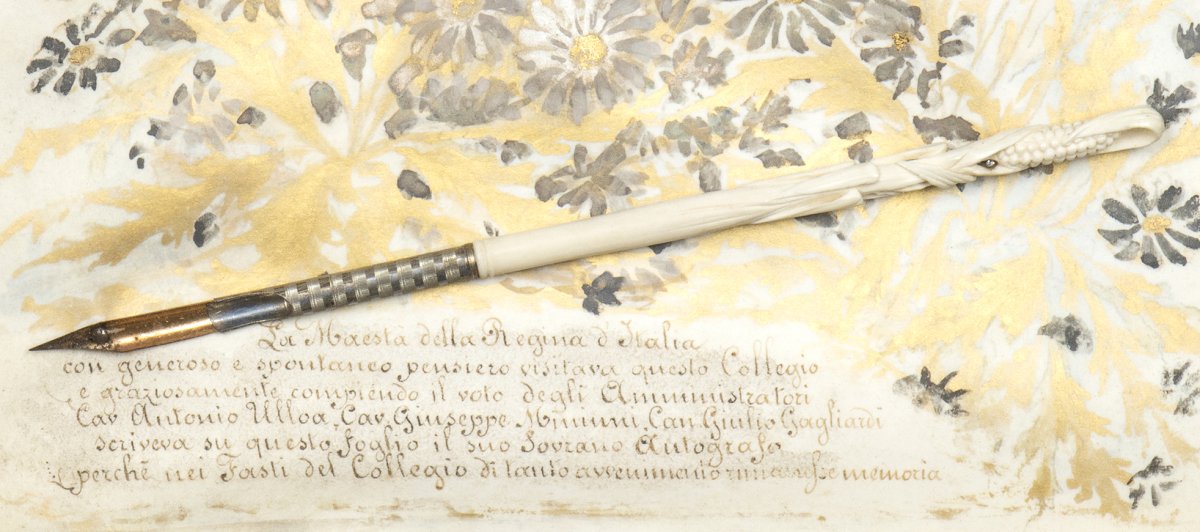 La Maestà della Regina d'Italia
con generoso e spontaneo pensiero visitava questo Collegio
e graziosamente compiendo il voto degli Amministratori
Cav Antonio Ulloa, Cav. Giuseppe Mininni, Can. Giulio Gagliardi
scriveva su questo foglio il suo Sovrano Autografo
perchè nei Fasti del Collegio di tanto avvenimento rimanesse memoria